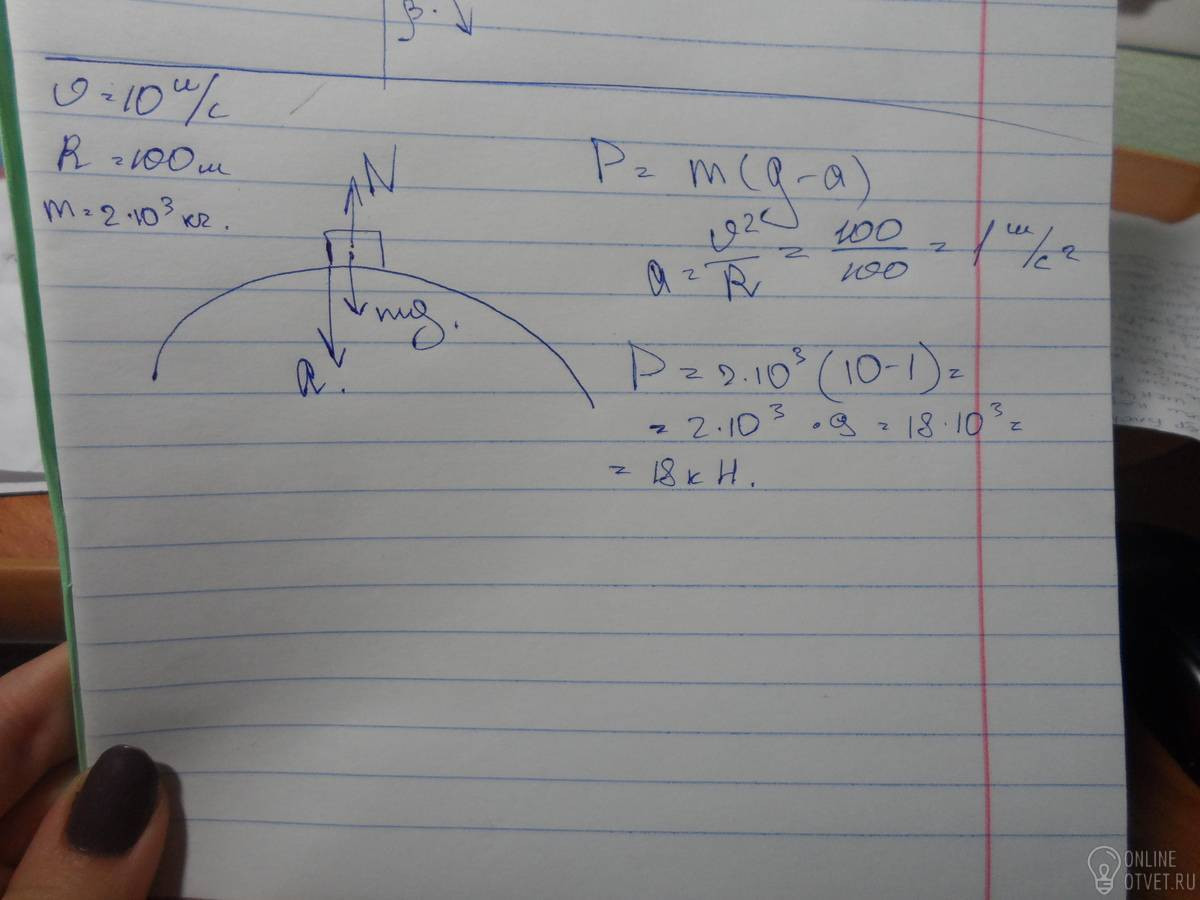 β.
υ = 10 м/с
R = 100 м
m = 2·10³ кг.
N
mg.
a.
P = m(g-a)
a = υ²/R = 100/100 = 1 м/с²
P = 2·10³ (10-1) =
= 2·10³ · 9 = 18·10³ =
= 18 кН.
ONLINE
OTVET.RU